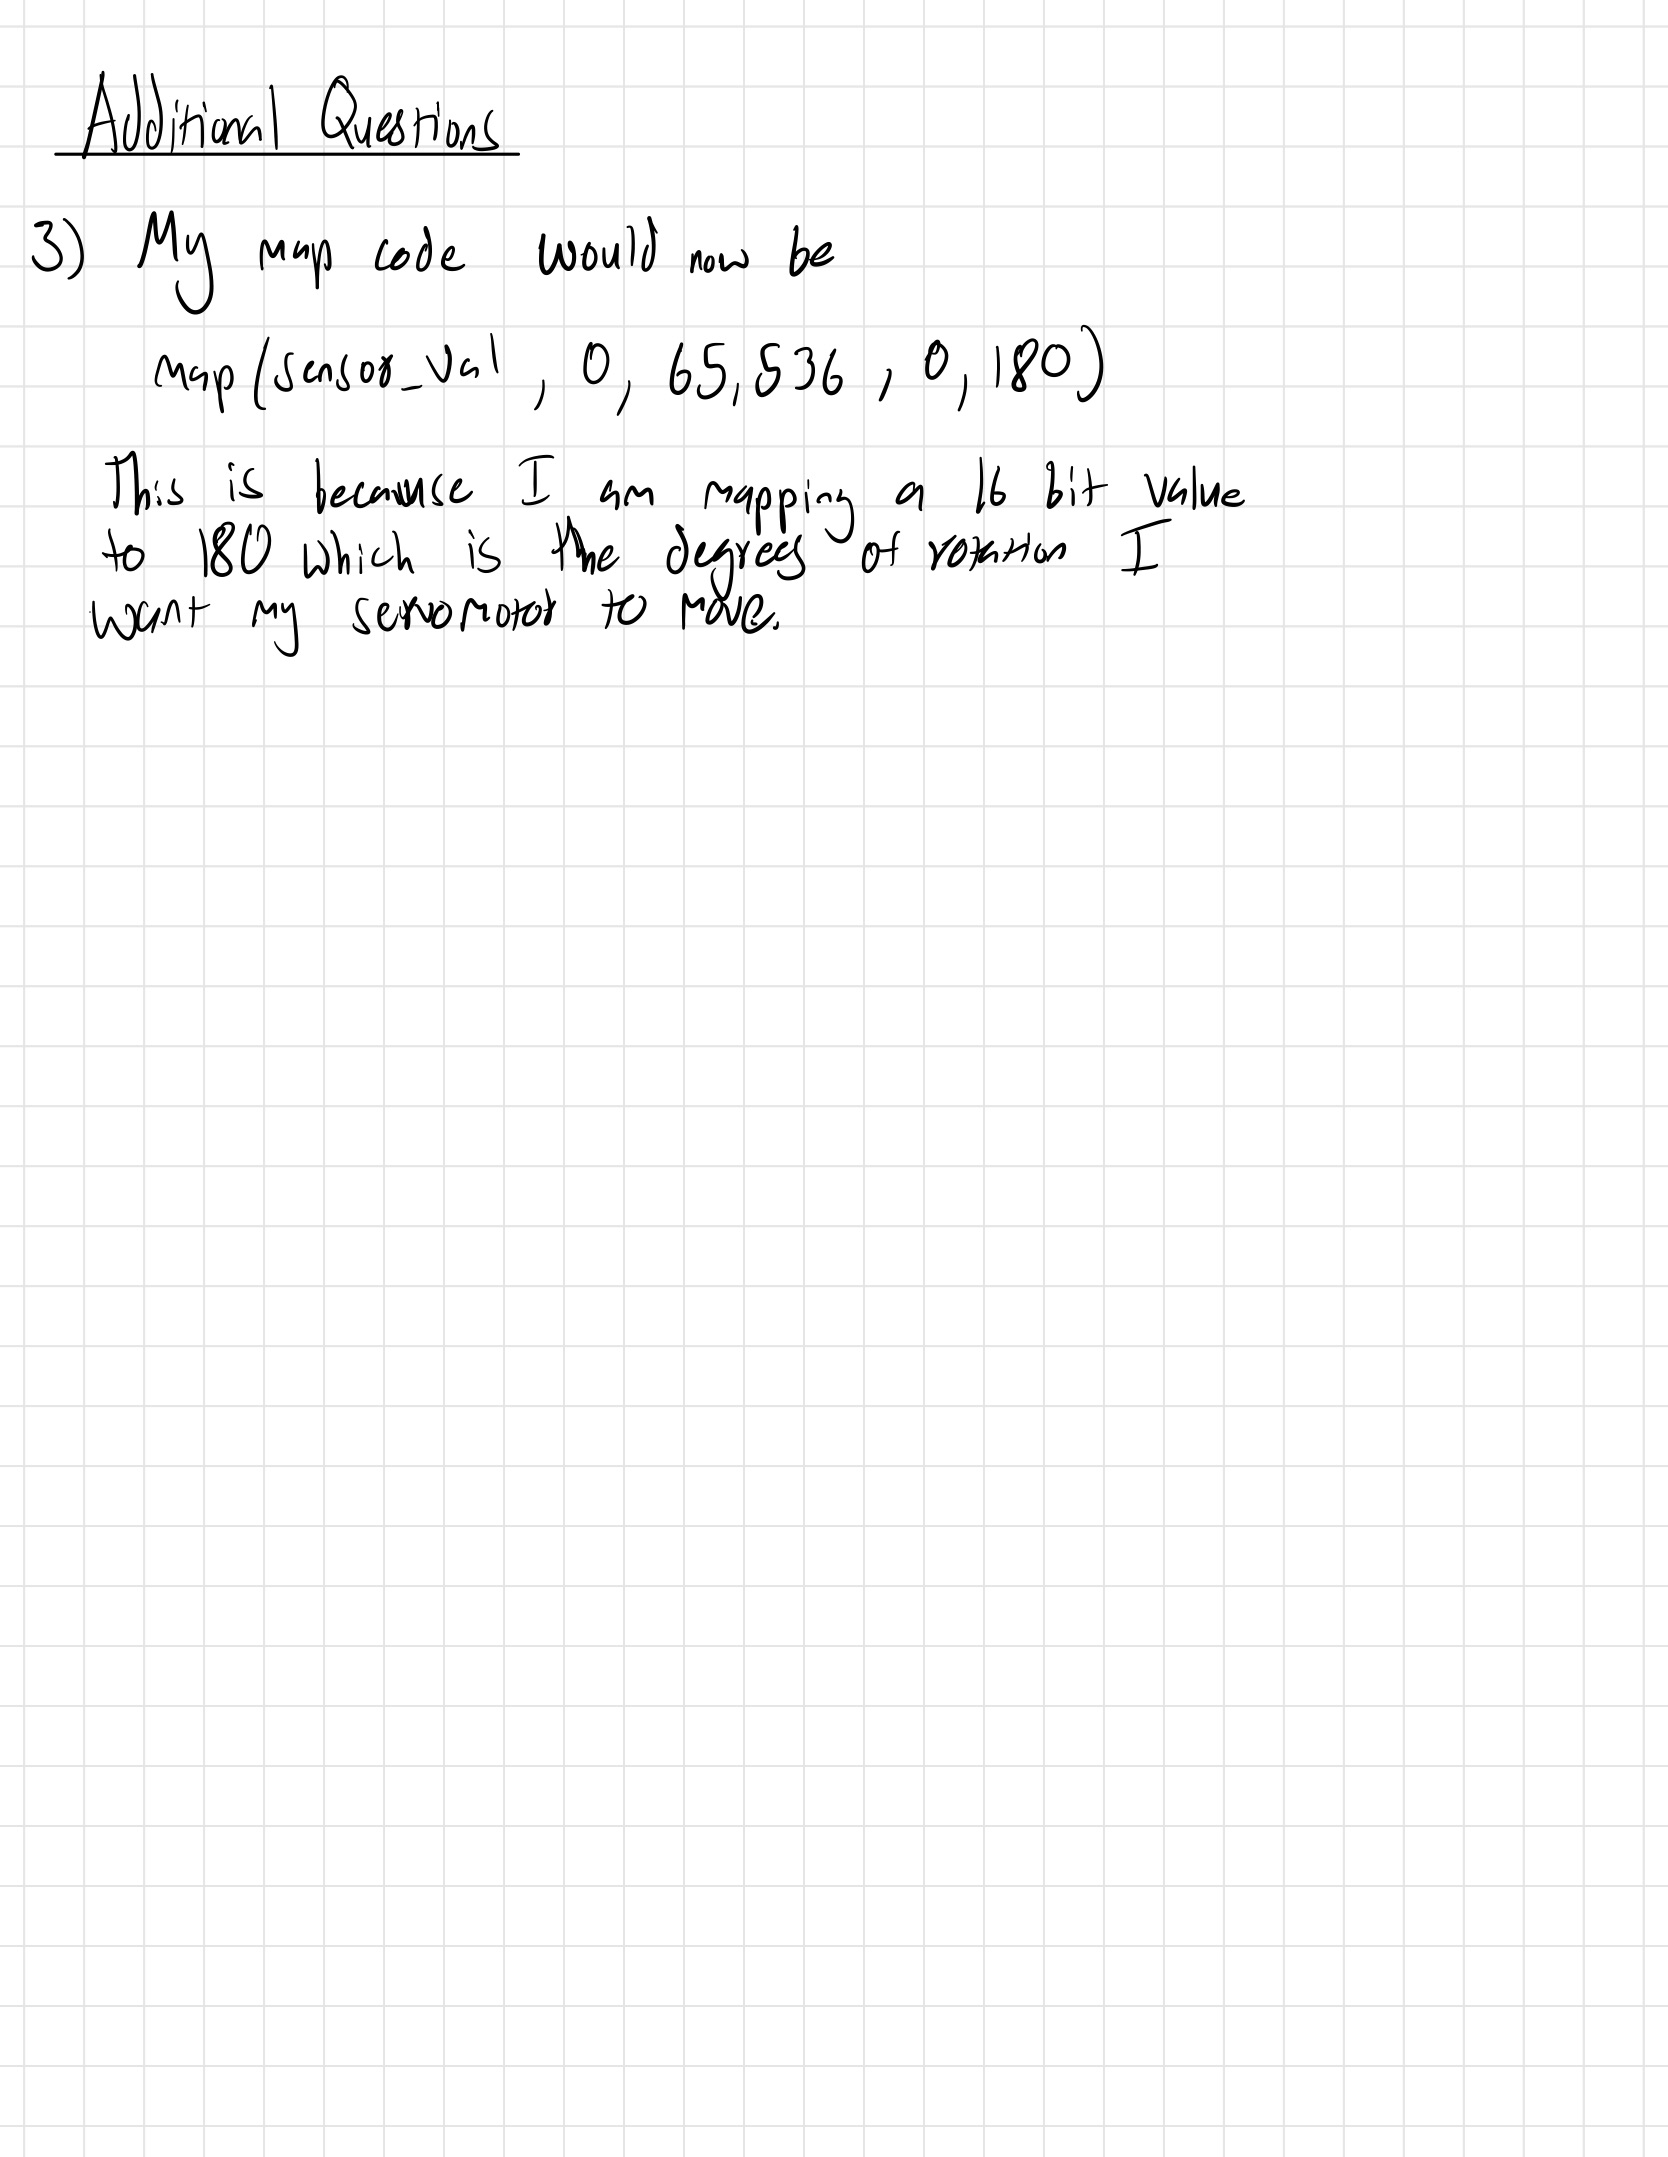 Additional Questions
3) My map code would now be
map(sensor_val, 0, 65,536, 0, 180)
This is because I am mapping a 16 bit value
to 180 which is the degrees of rotation I
want my servomotor to move.